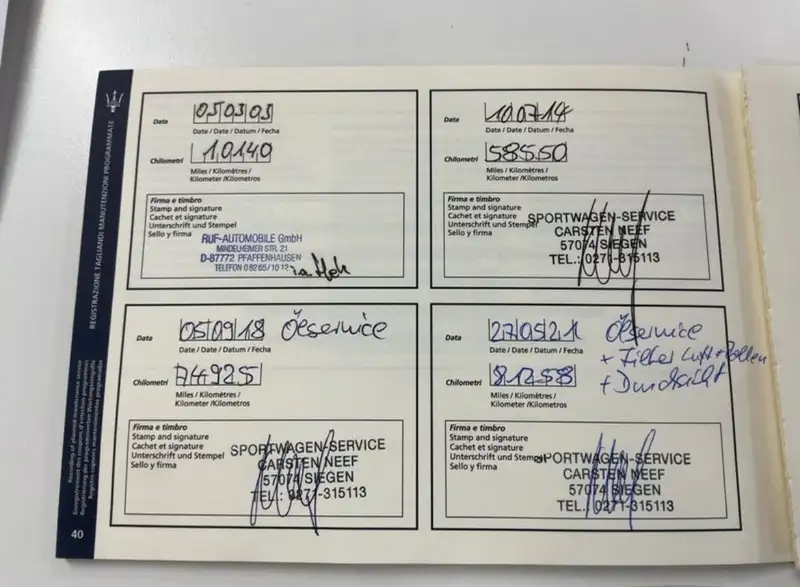 REGISTRAZIONE TAGLIANDI MANUTENZIONI PROGRAMMATE
Recording of planned maintenance service
Enregistrement des coupons d'entretien programmés
Registrierung der programmierten Wartungscoupons
Registro cupones mantenimientos programados
40
Data 05 03 03
Date / Date / Datum / Fecha
Chilometri 10140
Miles / Kilomètres /
Kilometer /Kilometros
Firma e timbro
Stamp and signature
Cachet et signature
Unterschrift und Stempel
Sello y firma
RUF-AUTOMOBILE GmbH
MINDELHEIMER STR. 21
D-87772 PFAFFENHAUSEN
TELEFON 08265/10 12
Data 10 07 14
Date / Date / Datum / Fecha
Chilometri 58550
Miles / Kilomètres /
Kilometer /Kilometros
Firma e timbro
Stamp and signature
Cachet et signature
Unterschrift und Stempel
Sello y firma
SPORTWAGEN-SERVICE
CARSTEN NEEF
57074 SIEGEN
TEL.: 0271-315113
Data 05 09 18 Ölservice
Date / Date / Datum / Fecha
Chilometri 74925
Miles / Kilomètres /
Kilometer /Kilometros
Firma e timbro
Stamp and signature
Cachet et signature
Unterschrift und Stempel
Sello y firma
SPORTWAGEN-SERVICE
CARSTEN NEEF
57074 SIEGEN
TEL.: 0271-315113
Data 27 05 21 Ölservice
Date / Date / Datum / Fecha
+ Filter Luft + Pollen
Chilometri 81258
+ Durchsicht
Miles / Kilomètres /
Kilometer /Kilometros
Firma e timbro
Stamp and signature
Cachet et signature
Unterschrift und Stempel
Sello y firma
SPORTWAGEN-SERVICE
CARSTEN NEEF
57074 SIEGEN
TEL.: 0271-315113